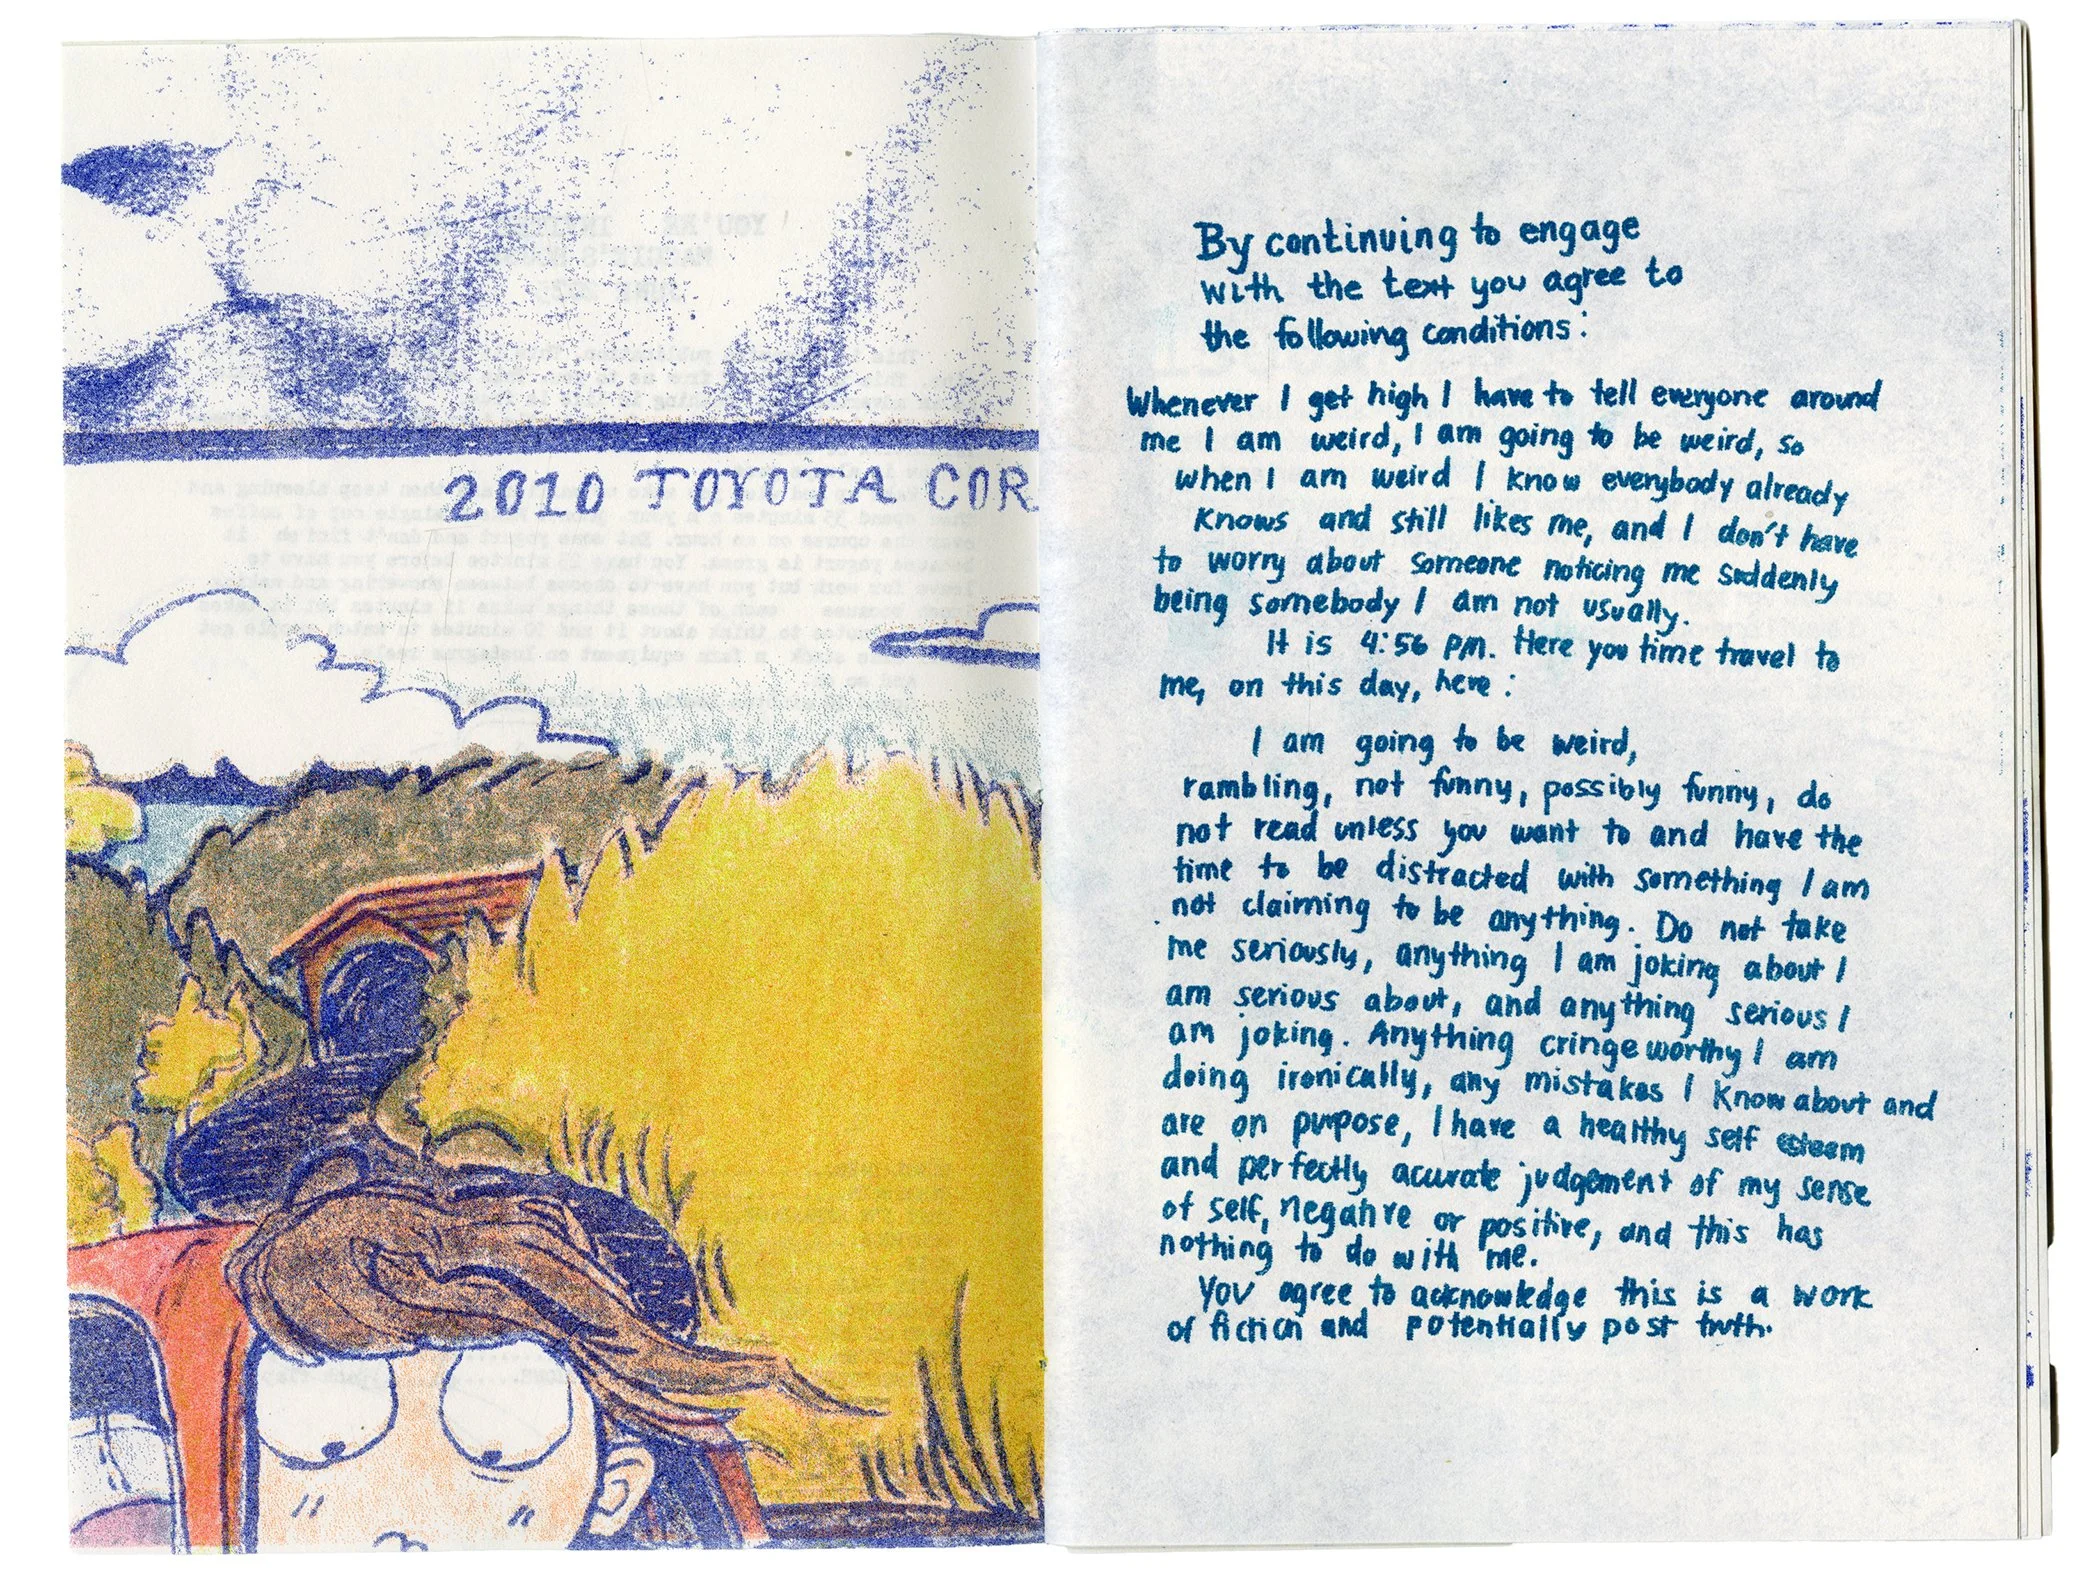 2010 TOYOTA COR
By continuing to engage
with the text you agree to
the following conditions:
Whenever I get high I have to tell everyone around
me I am weird, I am going to be weird, so
when I am weird I know everybody already
knows and still likes me, and I don't have
to worry about someone noticing me suddenly
being somebody I am not usually.
It is 4:56 PM. Here you time travel to
me, on this day, here:
I am going to be weird,
rambling, not funny, possibly funny, do
not read unless you want to and have the
time to be distracted with something I am
not claiming to be anything. Do not take
me seriously, anything I am joking about I
am serious about, and anything serious I
am joking. Anything cringeworthy I am
doing ironically, any mistakes I know about and
are on purpose, I have a healthy self esteem
and perfectly accurate judgement of my sense
of self, negative or positive, and this has
nothing to do with me.
You agree to acknowledge this is a work
of fiction and potentially post truth.